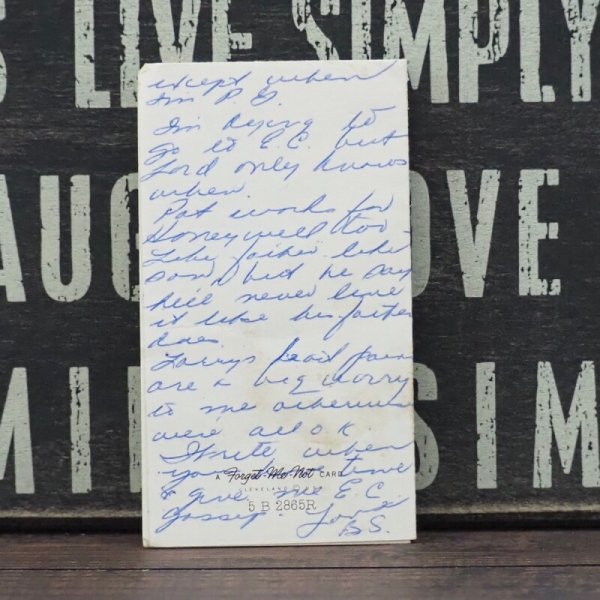 LIVE SIMPLY
AUG OVE
MI SIM
except when
I'm P. O.
I'm dying to
go to E.C. but
Lord only knows
when.
Pat works for
Honeywell too -
Like father like
son, but he say
he'll never live
it like his father
does.
Larrys head pain
are a big worry
to me otherwise
were all O K.
Write when
you have time
& give me E. C.
gossip. Love
B.S.
A Forget-Me-Not CARD
CLEVELAND
5 B 2865R